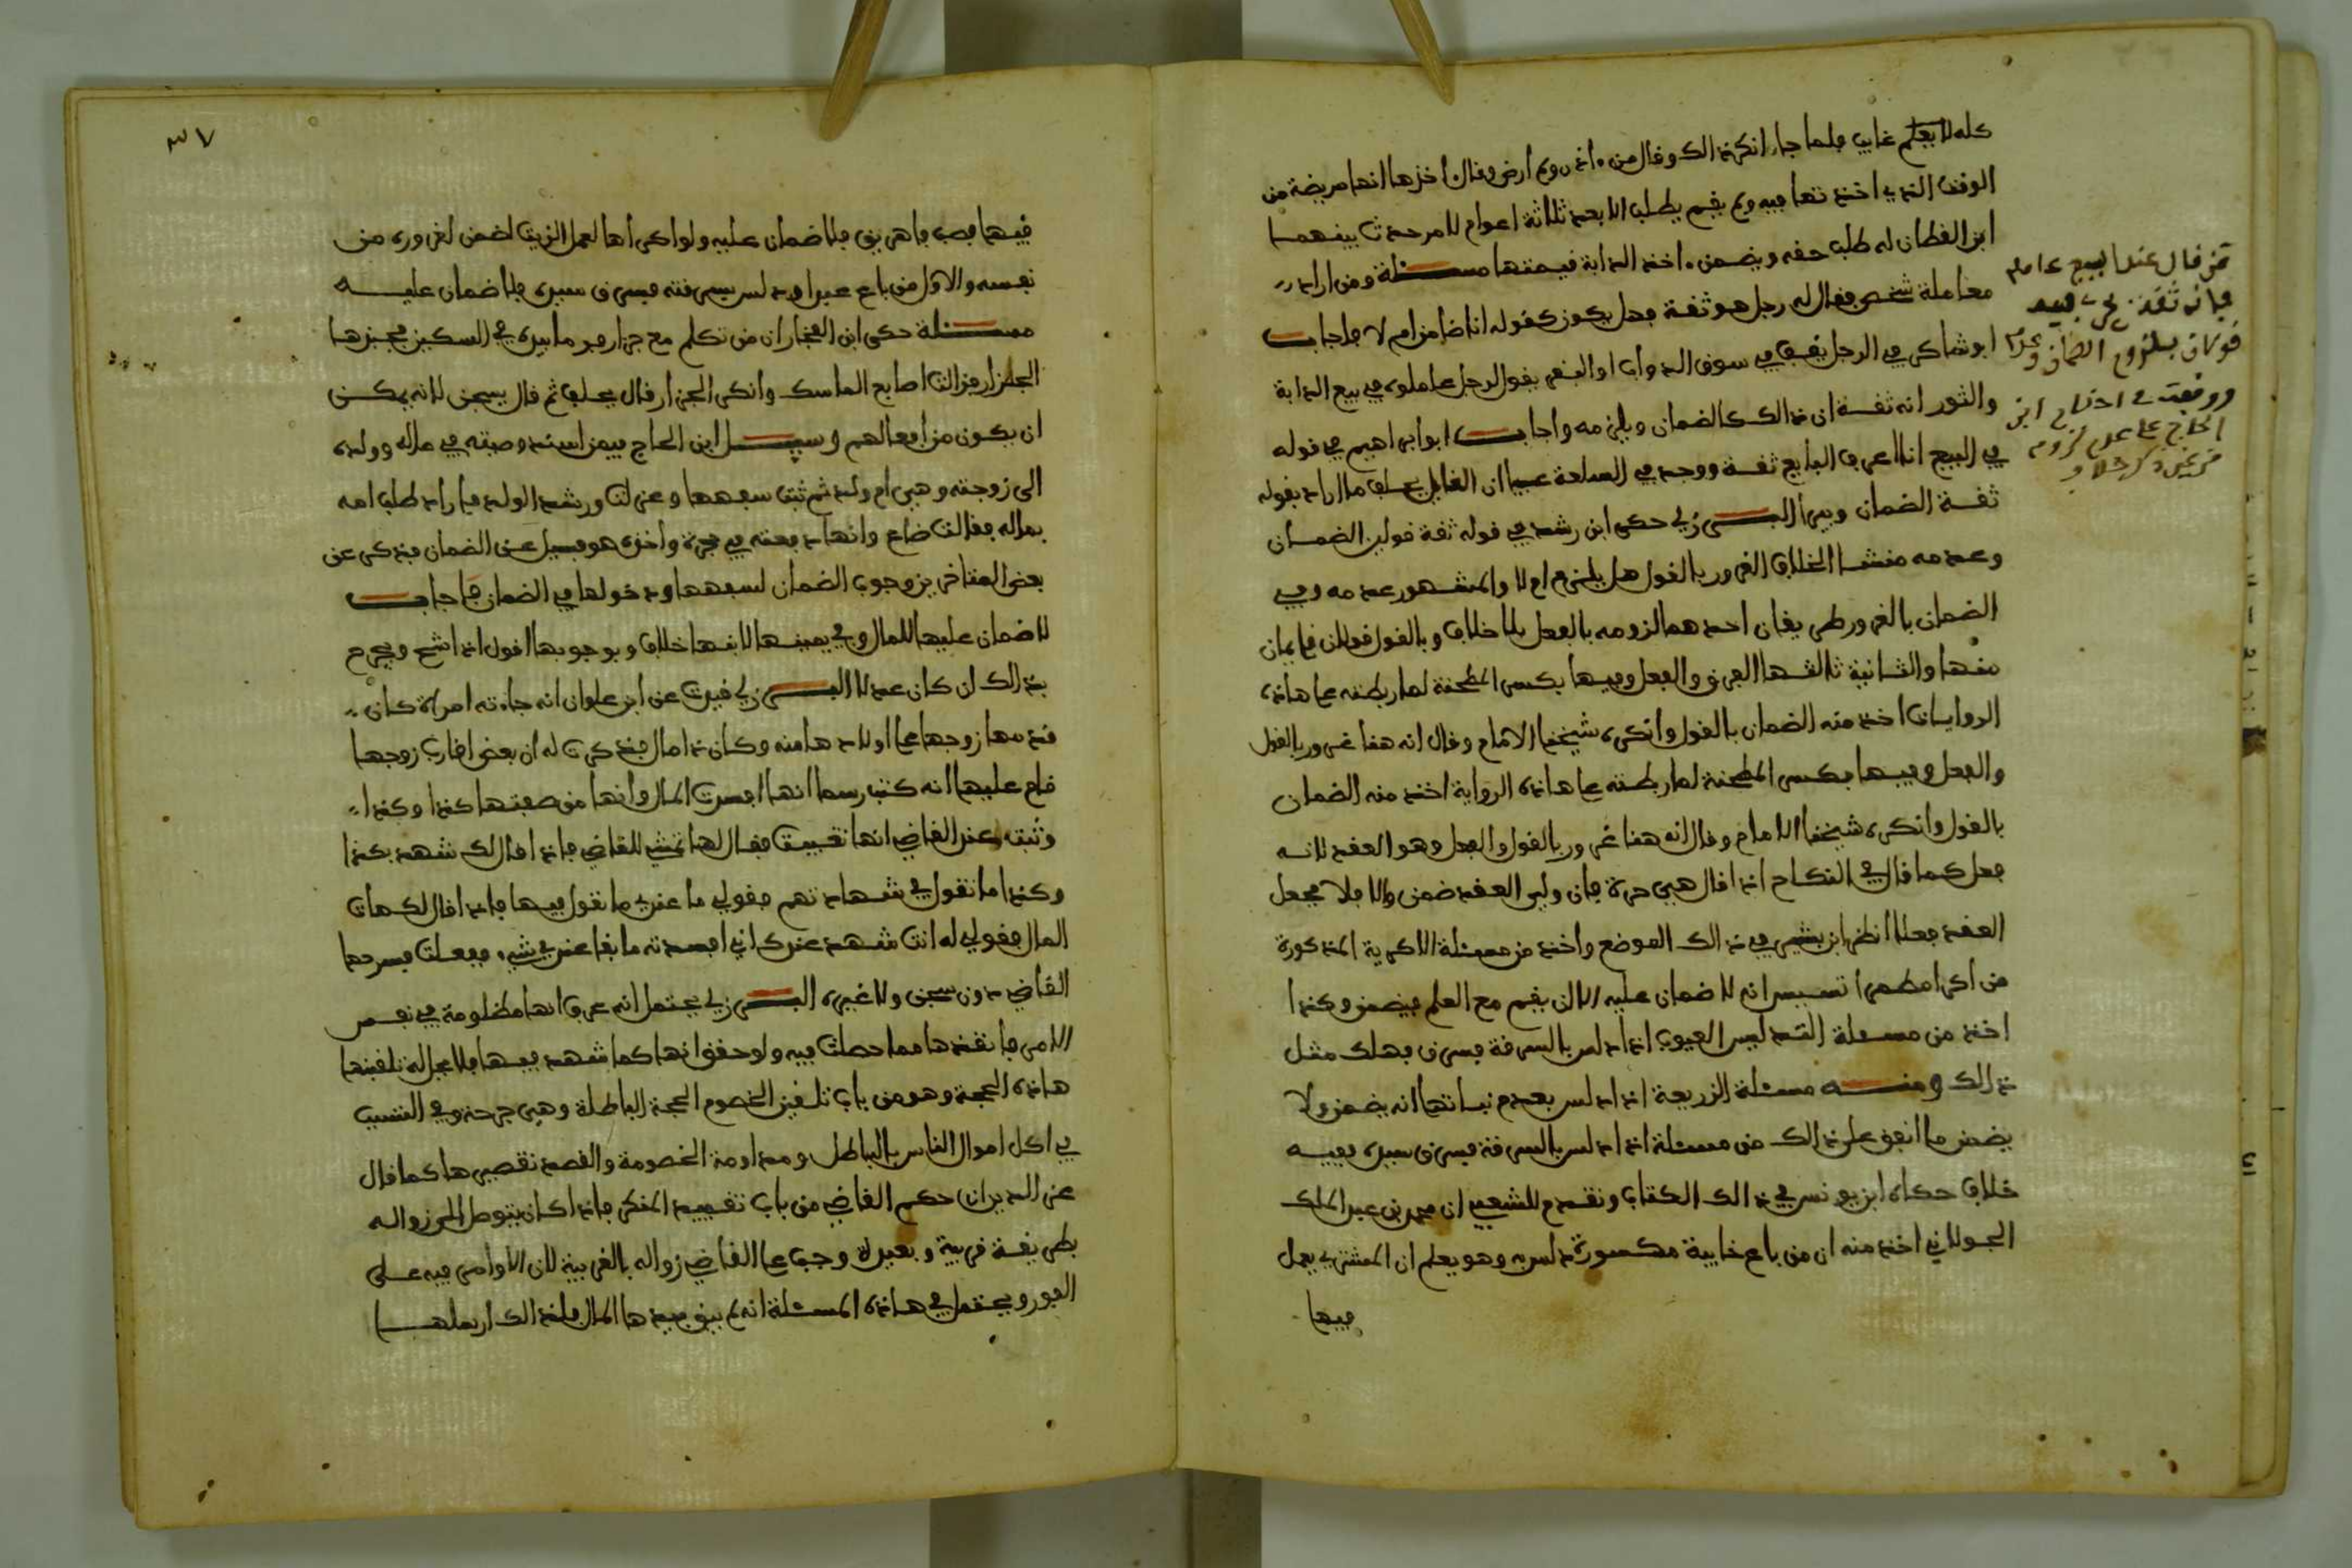 كله لا يعلم غايب فلما جاء انكر ذالك وقال من اذن ولم ارض وقال اخذها انها مريضة من
الوقت الذي اخذتها فيه ولم يقم يطلب الا بعد ثلاثة اعوام لامر حدث بينهمـا
ابن القطان له طلب حقه ويضمن اخذ الدابة قيمتها مسـئلة ومن اراد
معاملة شخص فقال له رجل هو ثقة فهل يكون كقوله انا ضامن ام لا فاجاب
ابو شاكر في الرجل يقف في سوق الدواب او البقر يقول لرجل عاملوه في بيع الدابة
والثور انه ثقة ان ذالك كالضمان ويلزمه واجاب ابو ابراهيم في قوله
في البيع انا اعرف البايع ثقة ووجد في السلعة عيبا ان القايل يحلف ما اراد بقوله
ثقة الضمان ويبرأ البـرزلي حكى ابن رشد في قوله ثقة قولين الضمـان
وعدمه منشـا الخلاف الغرور بالقول هل يلزم ام لا والمشهور عدمه وفي
الضمان بالغرور طريقان احدهما لزومه بالفعل بلا خلاف وبالقول قولان قايمان
منها والثـانية ثالثـها الفرق والفعل وفيها بكسر المطحنة لما ربطته على هاذه
الروايات اخذ منه الضمان بالقول وانكره شيخنا الامام وقال انه هنا غرور بالقول
والفعل وفيـها بكسر المطحنة لما ربطته على هاذه الرواية اخذ منه الضمان
بالقول وانكره شيخنا الامام وقال انه هنا غرور بالقول والفعل وهو العقد لانـه
فعل كما قال في النكاح اذا قال هي حرة فان ولي العقد ضمن والا فلا فجعل
العقد فعلا انظر ابن بشير في ذالك الموضع واخذ من مسئلة الاكرية المذكورة
من اكرا مطمرا تسـيس انه لا ضمان عليه الا ان يقيم مع العلم فيضمن وكذا
اخذ من مسئلة التدليس العيوب اذا دلس بالسرقة فسرق فهلك مثـل
ذالك ومنـــه مسئلة الزريعة اذا دلس بعدم نباتها انه يضمن ولا
يضمن ما انفق على ذالك من مسئلة اذا دلس بالسرقة فسرق سيده ففيـه
خلاف حكاه ابن يونس في ذالك الكتاب وتقدم للشعبي ان محمد بن عبد الملك
الجولاني اخذ منه ان من باع خابية مكسورة دلس به وهو يعلم ان المشتري يعمل
فيها
من قال عند البيع عامله
فانه ثقة
قولان بلزوم الضمان وعدمه
ووقعت
ابن
الحاج على عدم لزوم
٣٧
فيـها فصب فاهريق فلا ضمان عليه ولو اكراها لعمل الزيت لضمن لغروره من
نفسـه والاول من باع عبدا ودلس بسرقته فسرق سيده فلا ضمان عليـــه
مســئلة حكى ابن الفخار ان من تكلم مع جزار وهو ما بيده في السكين فجبذها
الجزار فزالت اصابع الماسك وانكر الجزار قال يحلف ثم قال يسجن لانه يمكـن
ان يكون من افعالهم وسيـــل ابن الحاج فيمن اسند وصيته في ماله وولده
الى زوجته وهي ام ولد ثم ثبت سفهها وعزلت ورشد الولد فاراد طلب امه
بماله فقالت ضاع وانها دفعته في واخذه هو فسيل عن الضمان فذكر عن
بعض المتاخرين وجوب الضمان لسفهها ودخولها في الضمان فاجاب
لا ضمان عليها للمال وفي يمينـها لابنها خلاف وبوجوبها اقول اذا اشح ويجرح
بذالك ان كان عدلا البــرزلي قيدت عن ابن علوان انه جاءته امراة كان
قدمها زوجها على اولادها منه وكان ذا مال فذكرت له ان بعض اقارب زوجها
قام عليها انه كتب رسما انها افسدت المال وانها من صفتـها كذا وكذا
وثبت عند القاضي انها تغيبت فقـال لها تمشي للقاضي فاذا قال لك شهد بكذا
وكذا ما تقول في شهادتهم فقولي ما عندي ما نقول فيـها فاذا قال لك هات
المال فقولي له انت شهد عندك اني افسدته ما بقا عندي شيء ففعلت فسرحها
القاضي دون سجن ولا غيره البــرزلي يحتمل انه عرف انها مظلومة في نفس
الامر فانقذها مما حصلت فيه ولو حقق انها كما شهد فيـها فلا يحل له تلقينها
هاذه الحجة وهو من باب تلقين الخصوم الحجة الباطلة وهي جرحة وفي التسبب
في اكل اموال الناس بالباطل ومداومة الخصومة والقصد تقصيرها كما قال
عن المديران حكم القاضي من باب تغيير المنكر فاذا كان يتوصل الى زواله
بطريقة قريبة وبعيدة وجب على القاضي زواله بالقريبة لان الاوامر فيه علـى
الفور ويحتمل في هـاذه المسئلة انه لم يبق بيدها المال فلذالك ارسلهــا